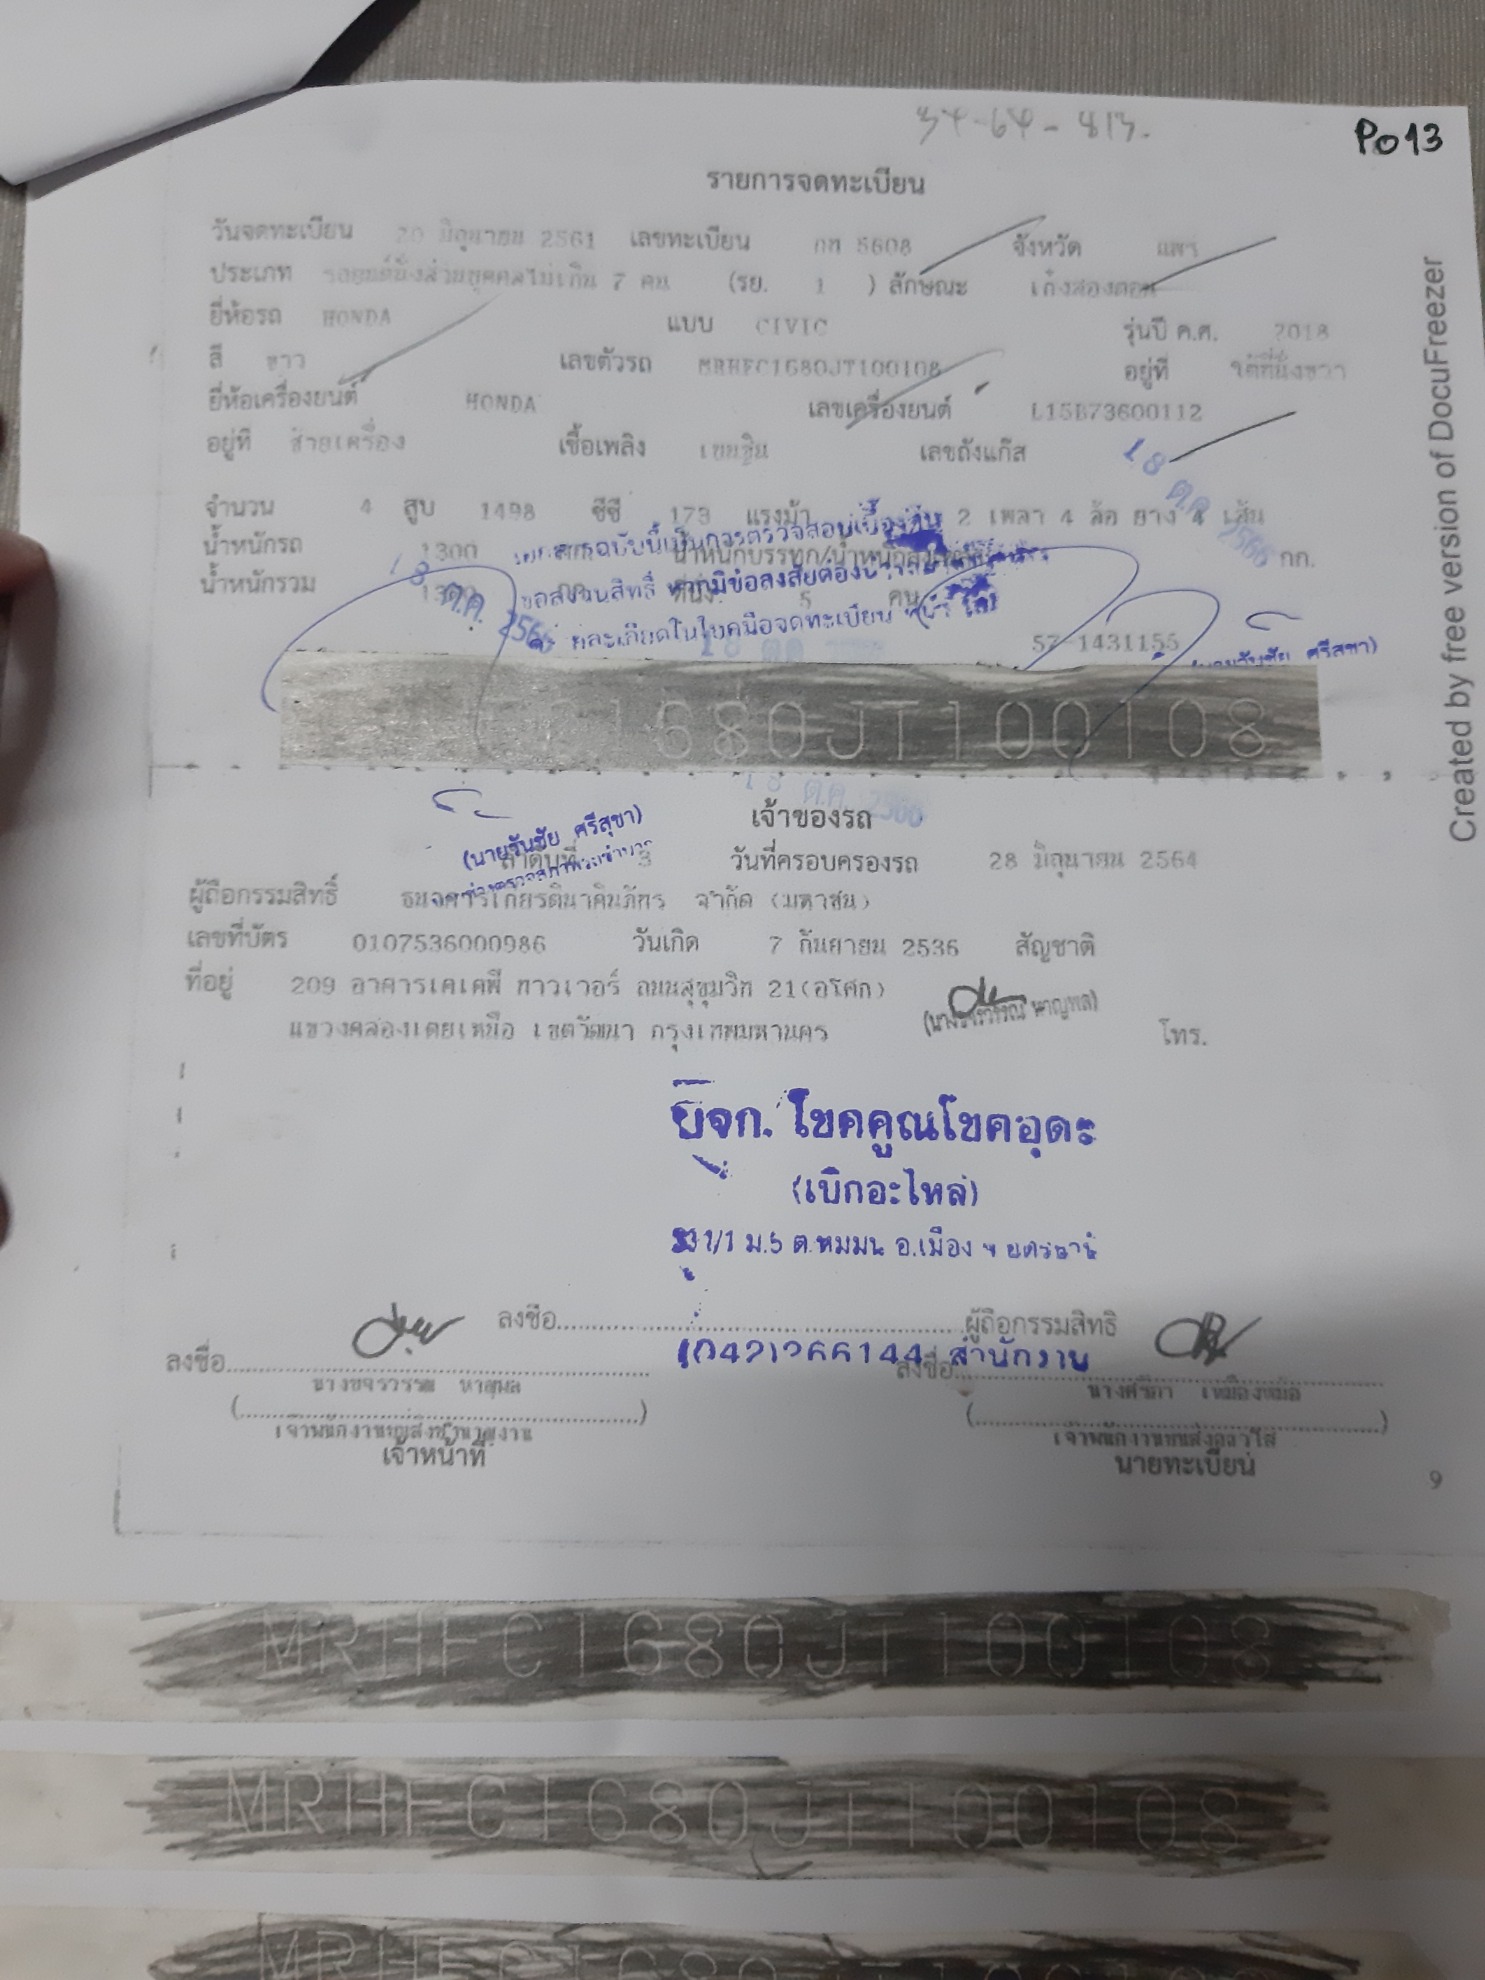 34-64-813.
P013
รายการจดทะเบียน
วันจดทะเบียน 20 มิถุนายน 2561 เลขทะเบียน 5608 จังหวัด แพร่
ประเภท รถยนต์นั่งส่วนบุคคลไม่เกิน 7 คน (รย. 1 ) ลักษณะ เก๋งสองตอน
ยี่ห้อรถ HONDA แบบ CIVIC รุ่นปี ค.ศ. 2018
สี ขาว เลขตัวรถ MRHFC1680JT100108 อยู่ที่ ใต้ที่นั่งขวา
ยี่ห้อเครื่องยนต์ HONDA เลขเครื่องยนต์ L15B73600112
อยู่ที่ ซ้ายเครื่อง เชื้อเพลิง เบนซิน เลขถังแก๊ส
18 ต.ค. 2566
จำนวน 4 สูบ 1498 ซีซี 173 แรงม้า 2 เพลา 4 ล้อ ยาง 4 เส้น
น้ำหนักรถ 1300 กก. น้ำหนักบรรทุก/น้ำหนักลงเพลา กก.
น้ำหนักรวม 1300 กก. ที่นั่ง 5 คน
เอกสารฉบับนี้เป็นการตรวจสอบเบื้องต้น
ขอสงวนสิทธิ์ หากมีข้อสงสัย
18 ต.ค. 2566
57-1431155
C1680JT100108
18 ต.ค. 2566
เจ้าของรถ
(นายวันชัย ศรีสุขา)
ลำดับที่ 3 วันที่ครอบครองรถ 28 มิถุนายน 2564
ผู้ถือกรรมสิทธิ์ ธนาคารเกียรตินาคินภัทร จำกัด (มหาชน)
เลขที่บัตร 0107536000986 วันเกิด 7 กันยายน 2536 สัญชาติ
ที่อยู่ 209 อาคารเคเคพี ทาวเวอร์ ถนนสุขุมวิท 21(อโศก)
แขวงคลองเตยเหนือ เขตวัฒนา กรุงเทพมหานคร โทร.
หจก. โชคคูณโชคอุดร
(เบิกอะไหล่)
1/1 ม.5 ต.หมูม่น อ.เมือง จ.อุดรธานี
ลงชื่อ ผู้ถือกรรมสิทธิ์
(042)266144 สำนักงาน
ลงชื่อ ลงชื่อ
เจ้าพนักงานขนส่งชำนาญงาน
เจ้าหน้าที่ นายทะเบียน
9
MRHFC1680JT100108
MRHFC1680JT100108
MRHFC1680JT100108
Created by free version of DocuFreezer